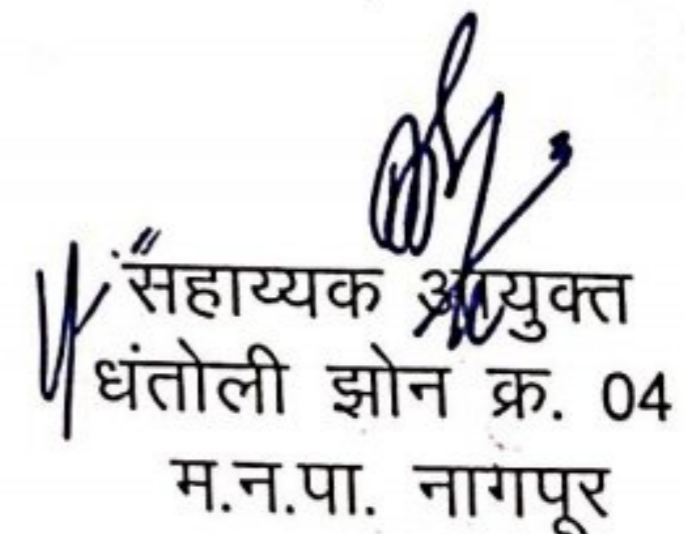 सहाय्यक आयुक्त
धंतोली झोन क्र. 04
म.न.पा. नागपूर